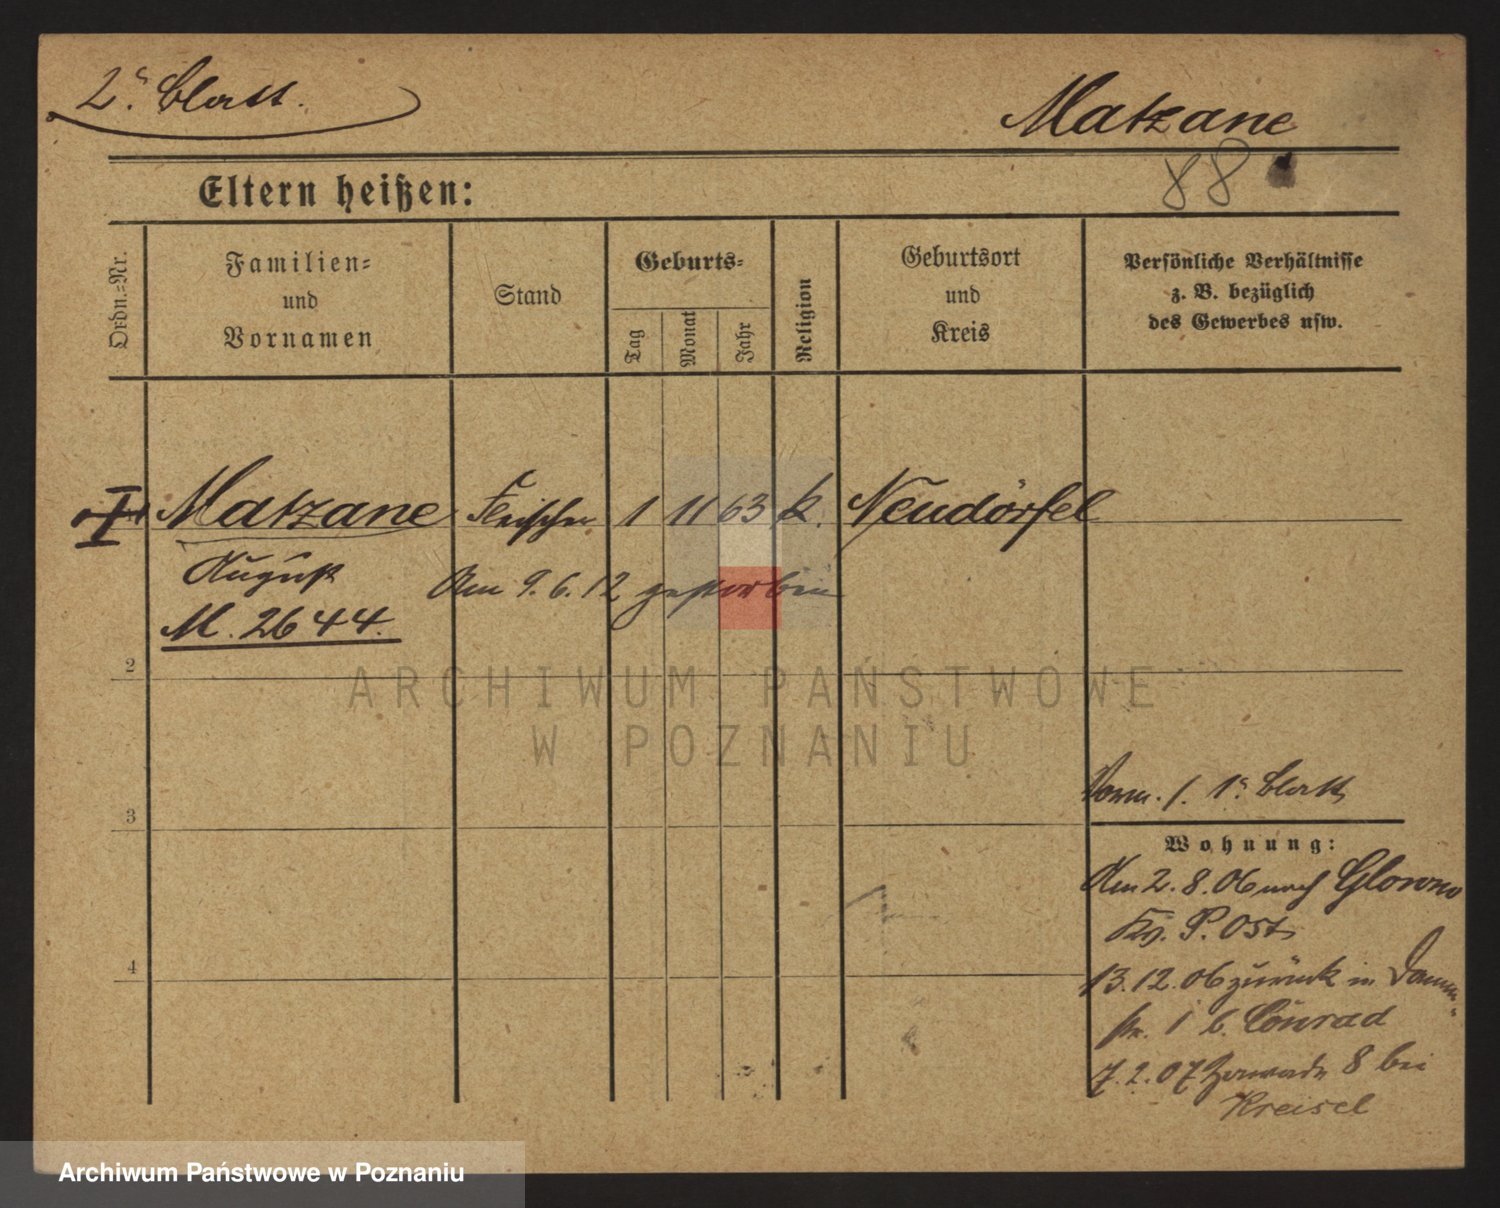 2s. Blatt.
Matzane
88
Eltern heißen:
Ordn.=Nr.
Familien=
und
Vornamen
Stand
Geburts=
Tag
Monat
Jahr
Religion
Geburtsort
und
Kreis
Persönliche Verhältnisse
z. B. bezüglich
des Gewerbes usw.
I Matzane Fleischer 1 11 63 k. Neudörfel
August
Am 9.6.12 gestorben
M. 2644.
2
ARCHIWUM PAŃSTWOWE
W POZNANIU
Vorm. 1. 1s. Blatt
3
Wohnung:
Am 2.8.06 nach Glowno
Kr. P. Ost
4
13.12.06 zurück in Damm-
str. 1 b. Conrad
7.2.07 8 bei
Kreisel
Archiwum Państwowe w Poznaniu